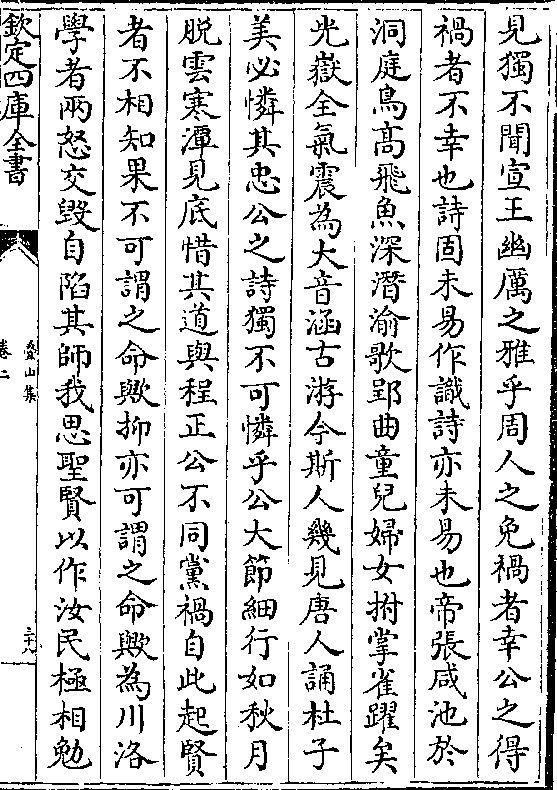 見獨不聞宣王幽厲之雅乎周人之免禍者幸公之得
禍者不幸也詩固未易作識詩亦未易也帝張咸池於
洞庭鳥高飛魚深潛渝歌郢曲童兒婦女拊掌雀躍矣
光嶽全氣震為大音涵古游今斯人幾見唐人誦杜子
美必憐其忠公之詩獨不可憐乎公大節細行如秋月
脱雲寒潭見底惜其道與程正公不同黨禍自此起賢
者不相知果不可謂之命歟抑亦可謂之命歟為川洛
學者兩怒交毀自陷其師我思聖賢以作汝民極相勉
欽定四庫全書
疊山集
卷二